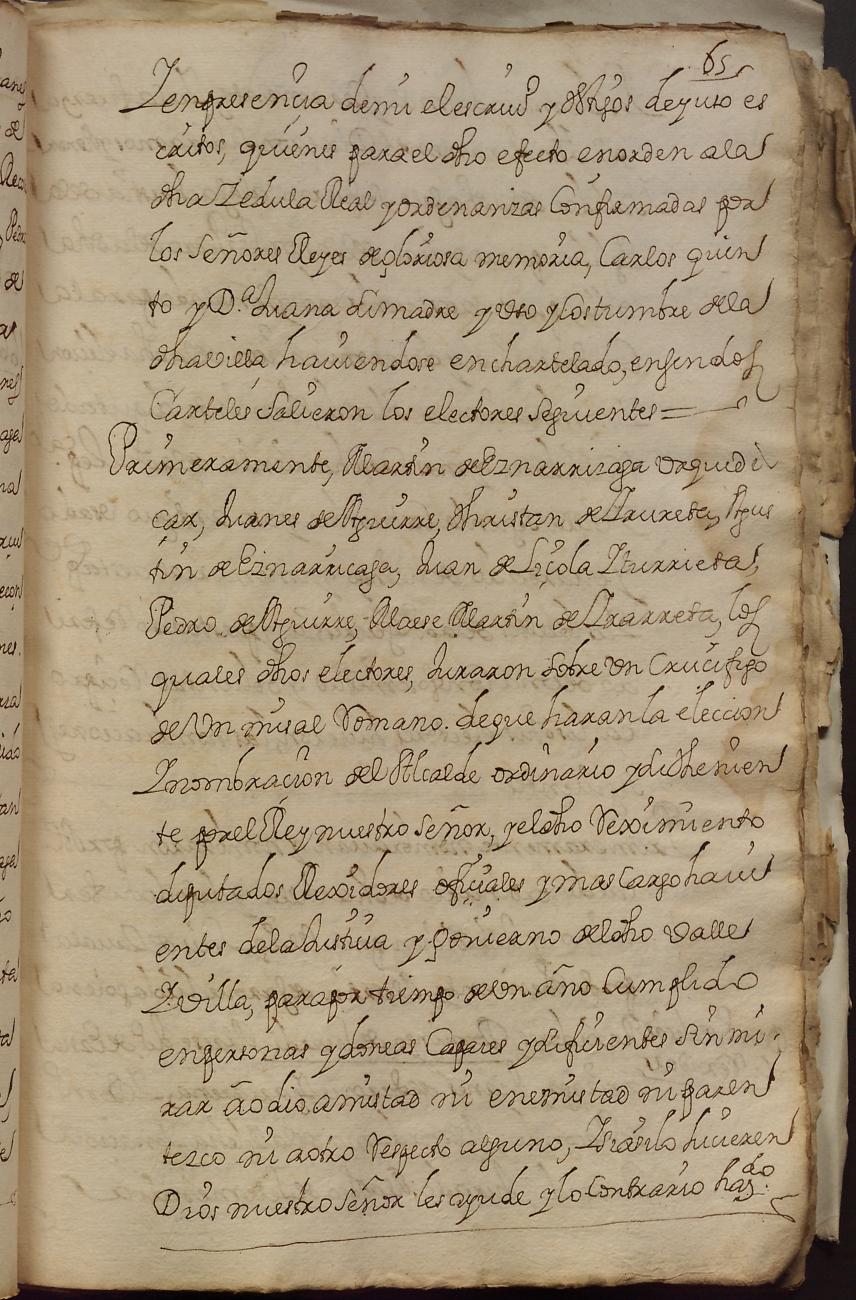 65
Y en presençia de mi el escriuº y testigos de yuso es
critos, quienes para el dho efecto en orden a la
dha Zedula Real y ordenanzas Confirmadas por
los Señores Reyes de gloriosa memoria, Carlos quin
to y D.ª Juana su madre y uso y Costumbre de la
dha villa hauiendose enchartelado, en sendos
Carteles Salieron los electores Seguientes =
Primeramente, Martin de Eznarrizaga Urquidi
çar, Juanes de Aguirre, Christan de Ydiaureta, Agus
tin de Eznarriçaga, Juan de Liçola Yturrieta,
Pedro de Aguirre, Maese Martin de Ydarreta, los
quales dhos electores, Juraron sobre Un Cruçifigo
de Un misal Romano. de que haran la eleccion
Y nombraçion del Alcalde ordinario y su thenien
te por el Rey nuestro Señor, y el dho Reximiento
diputados Rexidores ofiçiales y mas Cargo hauí
entes de la Justiçia y Gouierno del dho Valle
Y Villa, para por tiempo de Un año Cumplido
en personas ydoneas Capaçes y sufiçientes Sin mi
rar a odio amistad ni enemistad ni paren
tezco ni a otro Respecto alguno, Y si asi lo hiçieren
Dios nuestro Señor les ayude y lo Contrario haz.do